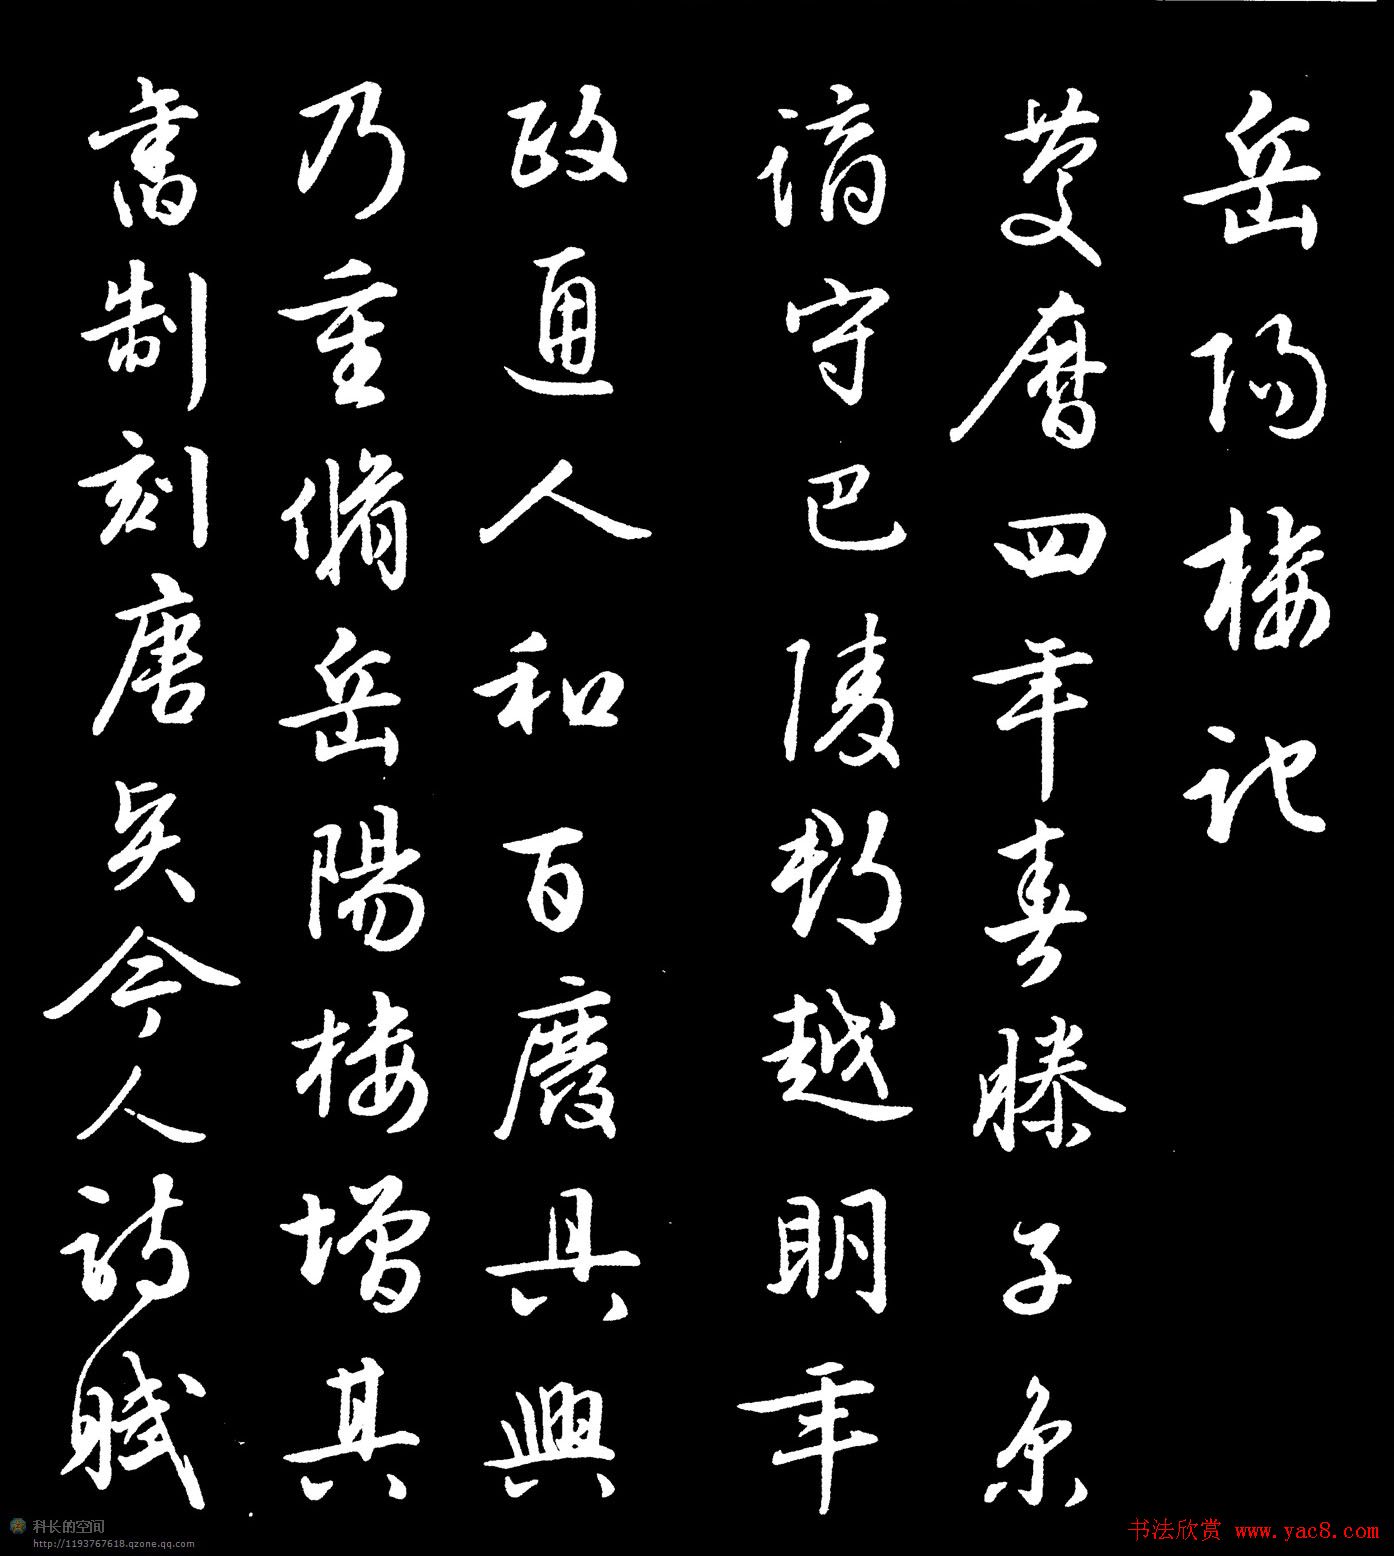 岳陽樓記
慶曆四年春滕子京
謫守巴陵郡越明年
政通人和百廢具興
乃重脩岳陽樓增其
舊制刻唐賢今人詩賦
科长的空间
http://1193767618.qzone.qq.com
书法欣赏 www.yac8.com